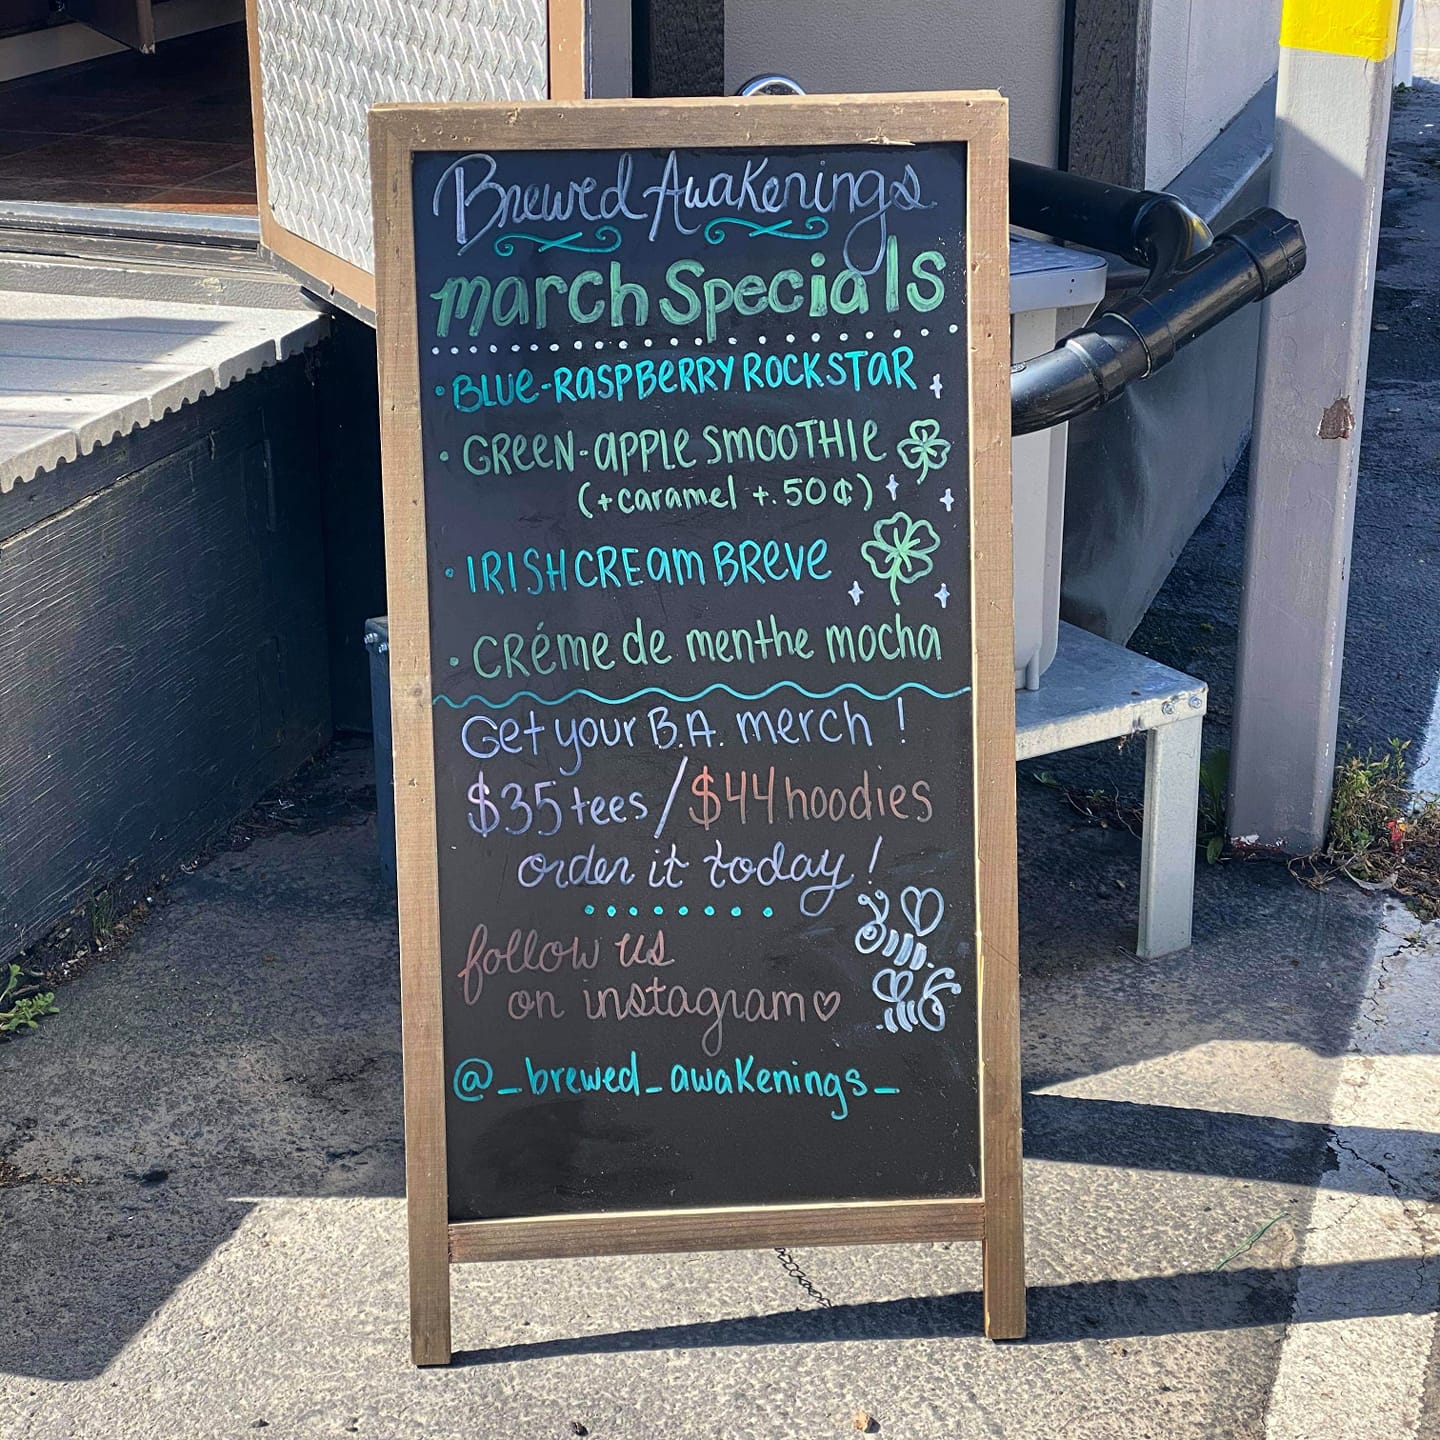 Brewed Awakenings
march Specials
• BLUE-RASPBERRY ROCKSTAR
• GREEN-APPLE SMOOTHIE
(+caramel +.50¢)
• IRISH CREAM BREVE
• CRéme de menthe mocha
Get your B.A. merch!
$35 tees / $44 hoodies
order it today!
follow us
on instagram♡
@_brewed_awakenings_